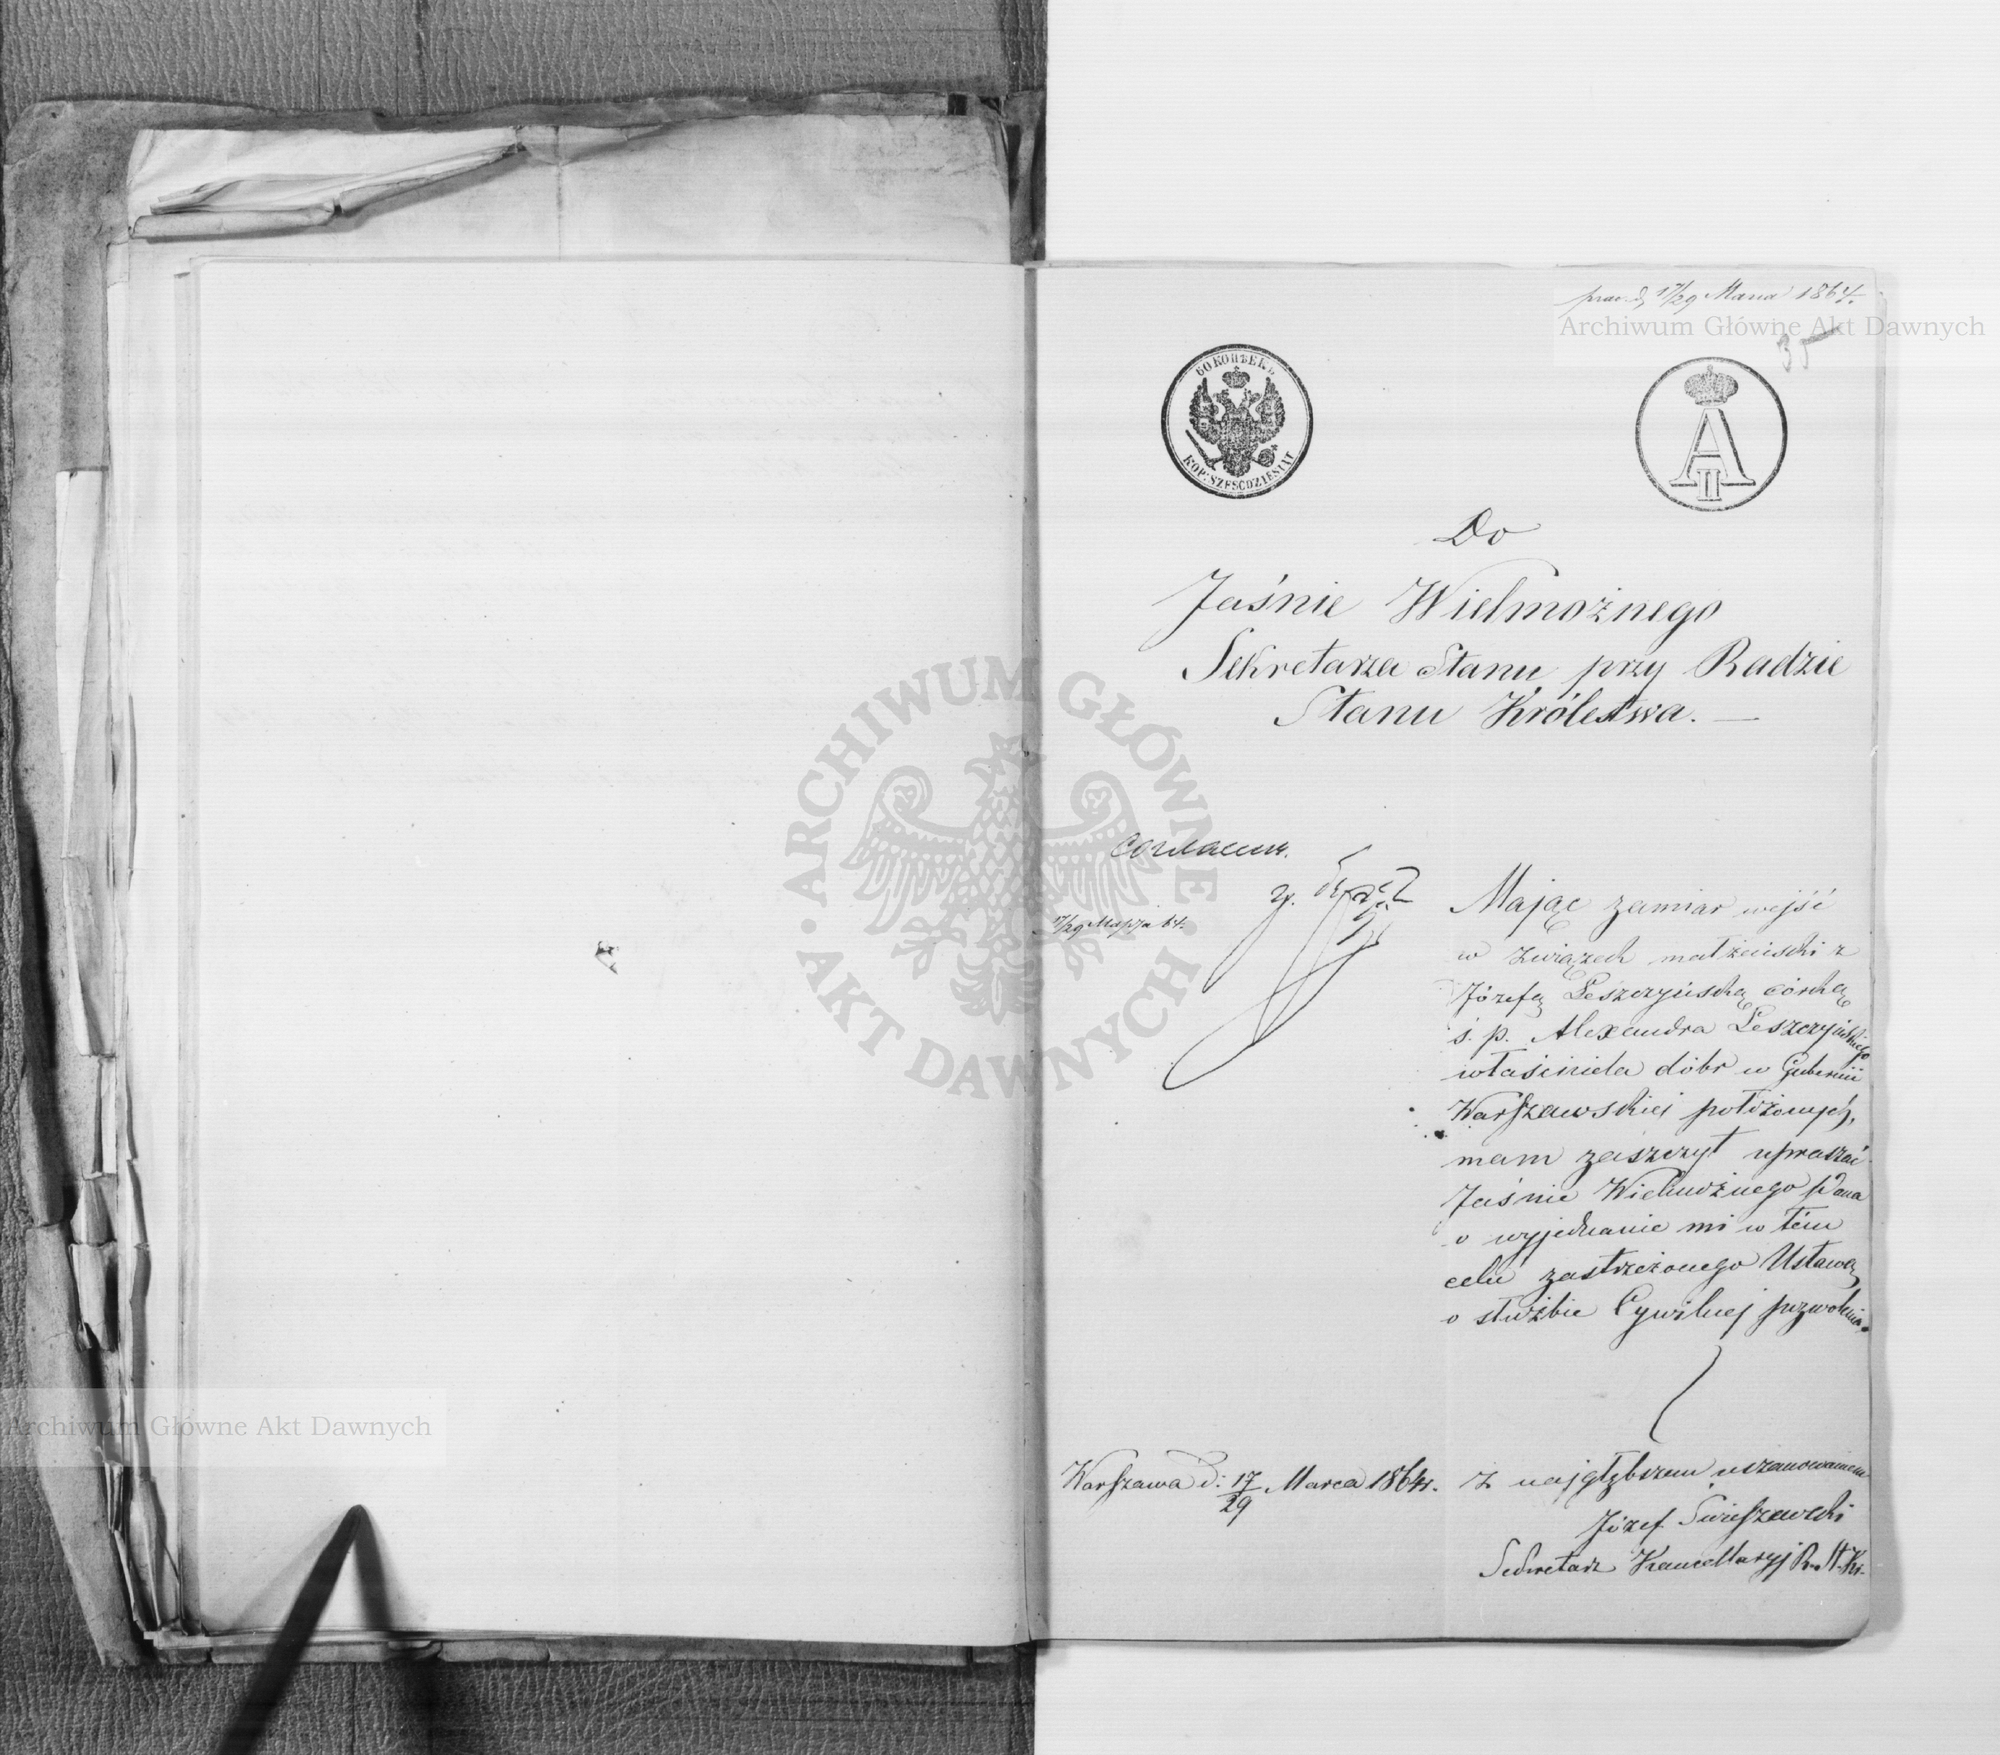 prar. d. 17/29 Marca 1864.
Archiwum Główne Akt Dawnych
35
60 КОПѢЕКЪ
KOP: SZEŚĆDZIESIĄT
A II
Do
Jaśnie Wielmożnego
Sekretarza Stanu przy Radzie
Stanu Królestwa. —
ARCHIWUM GŁÓWNE · AKT DAWNYCH ·
Согласенъ.
17/29 Марта 64.
Mając zamiar wejść
w związek małżeński z
Józefą Leszczyńską córką
ś. p. Alexandra Leszczyńskiego
właściciela dóbr w Gubernii
Warszawskiej położonych,
mam zaszczyt upraszać
Jaśnie Wielmożnego Pana
o wyjednanie mi w tém
celu zastrzeżonego Ustawą
o służbie Cywilnej pozwolenia.
Archiwum Główne Akt Dawnych
Warszawa d: 17/29 Marca 1864 r.
z najgłębszem uszanowaniem
Józef Świeszewski
Sekretarz Kancellaryj R. St. Kr.